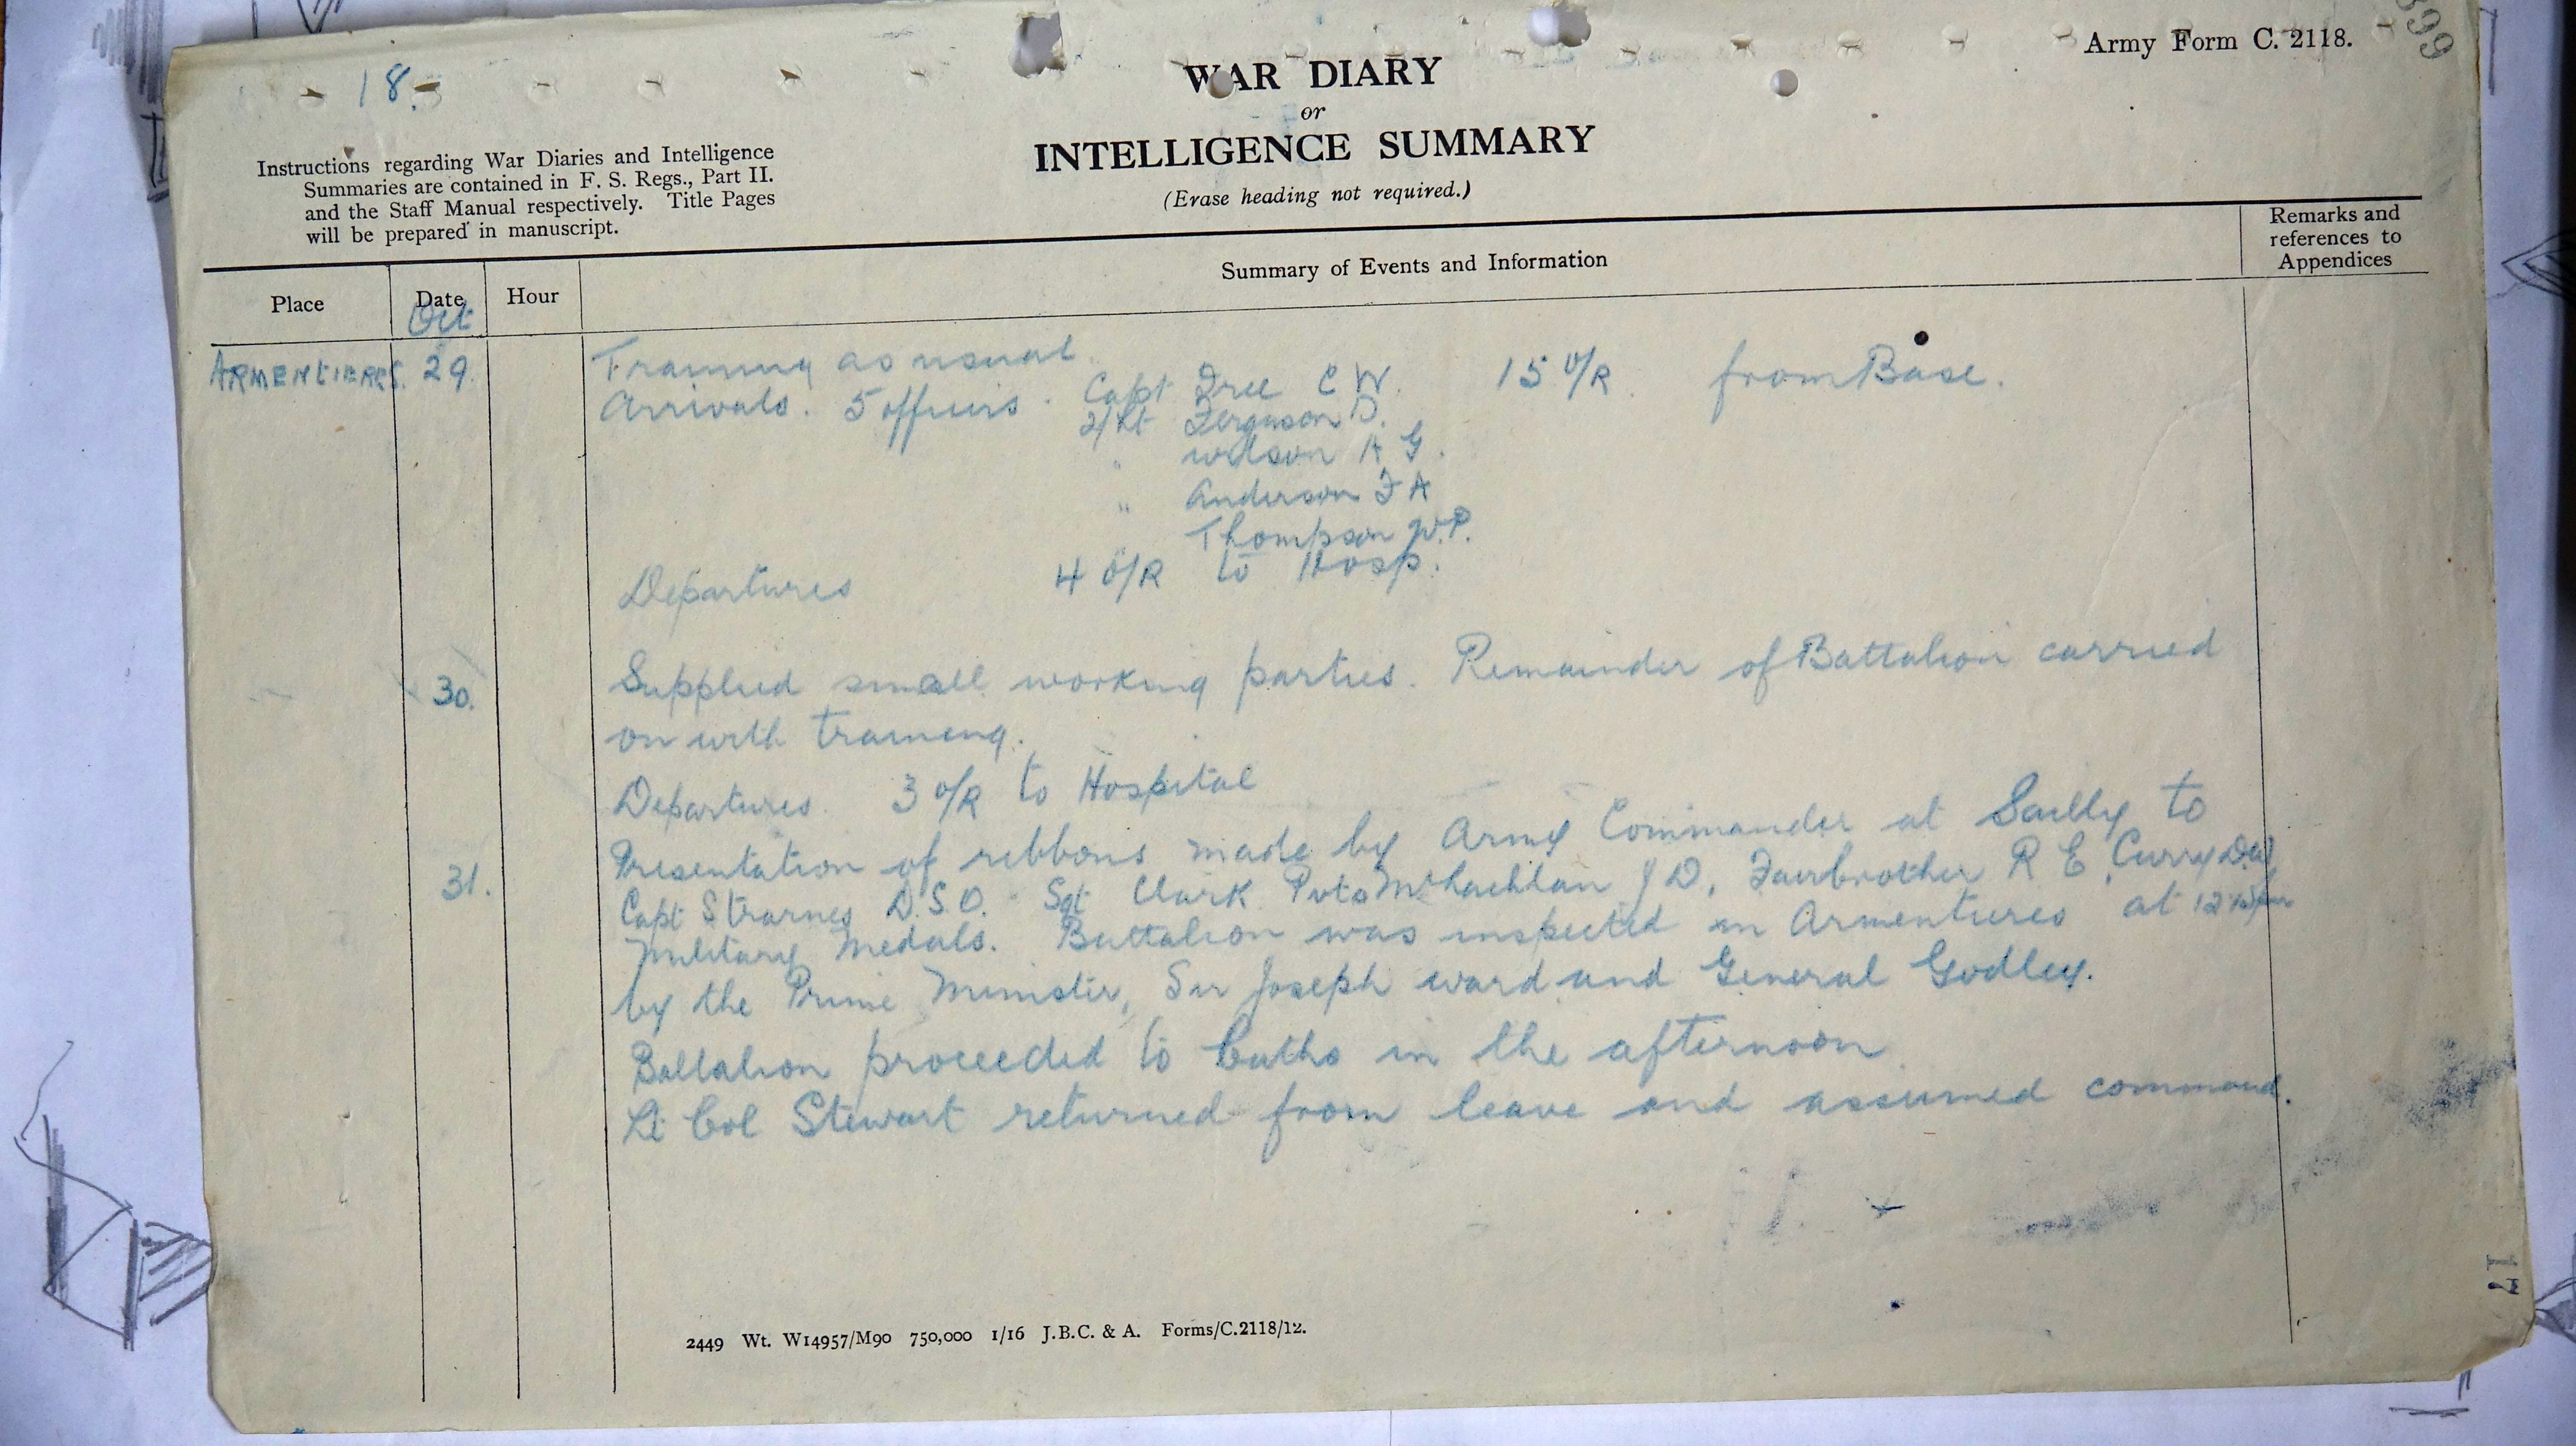 18.
Army Form C. 2118.
399
WAR DIARY
or
INTELLIGENCE SUMMARY
(Erase heading not required.)
Instructions regarding War Diaries and Intelligence
Summaries are contained in F. S. Regs., Part II.
and the Staff Manual respectively. Title Pages
will be prepared in manuscript.
Place Date Hour Summary of Events and Information Remarks and references to Appendices
Oct
ARMENTIERES. 29. Training as usual.
Arrivals. 5 officers. Capt Free C W. 15 O/R. from Base.
2/Lt Ferguson D.
" Wilson A G.
" Anderson F A
" Thompson W.P.
Departures 4 O/R to Hosp.
30. Supplied small working parties. Remainder of Battalion carried
on with training.
Departures. 3 O/R to Hospital
31. Presentation of ribbons made by Army Commander at Sailly to
Capt Starnes D.S.O. Sgt Clark Pvts McLachlan J D, Fairbrother R E, Curry
Military Medals. Battalion was inspected in Armentieres at
by the Prime Minister, Sir Joseph Ward and General Godley.
Battalion proceeded to Baths in the afternoon
Lt Col Stewart returned from leave and assumed command.
17
2449 Wt. W14957/M90 750,000 1/16 J.B.C. & A. Forms/C.2118/12.